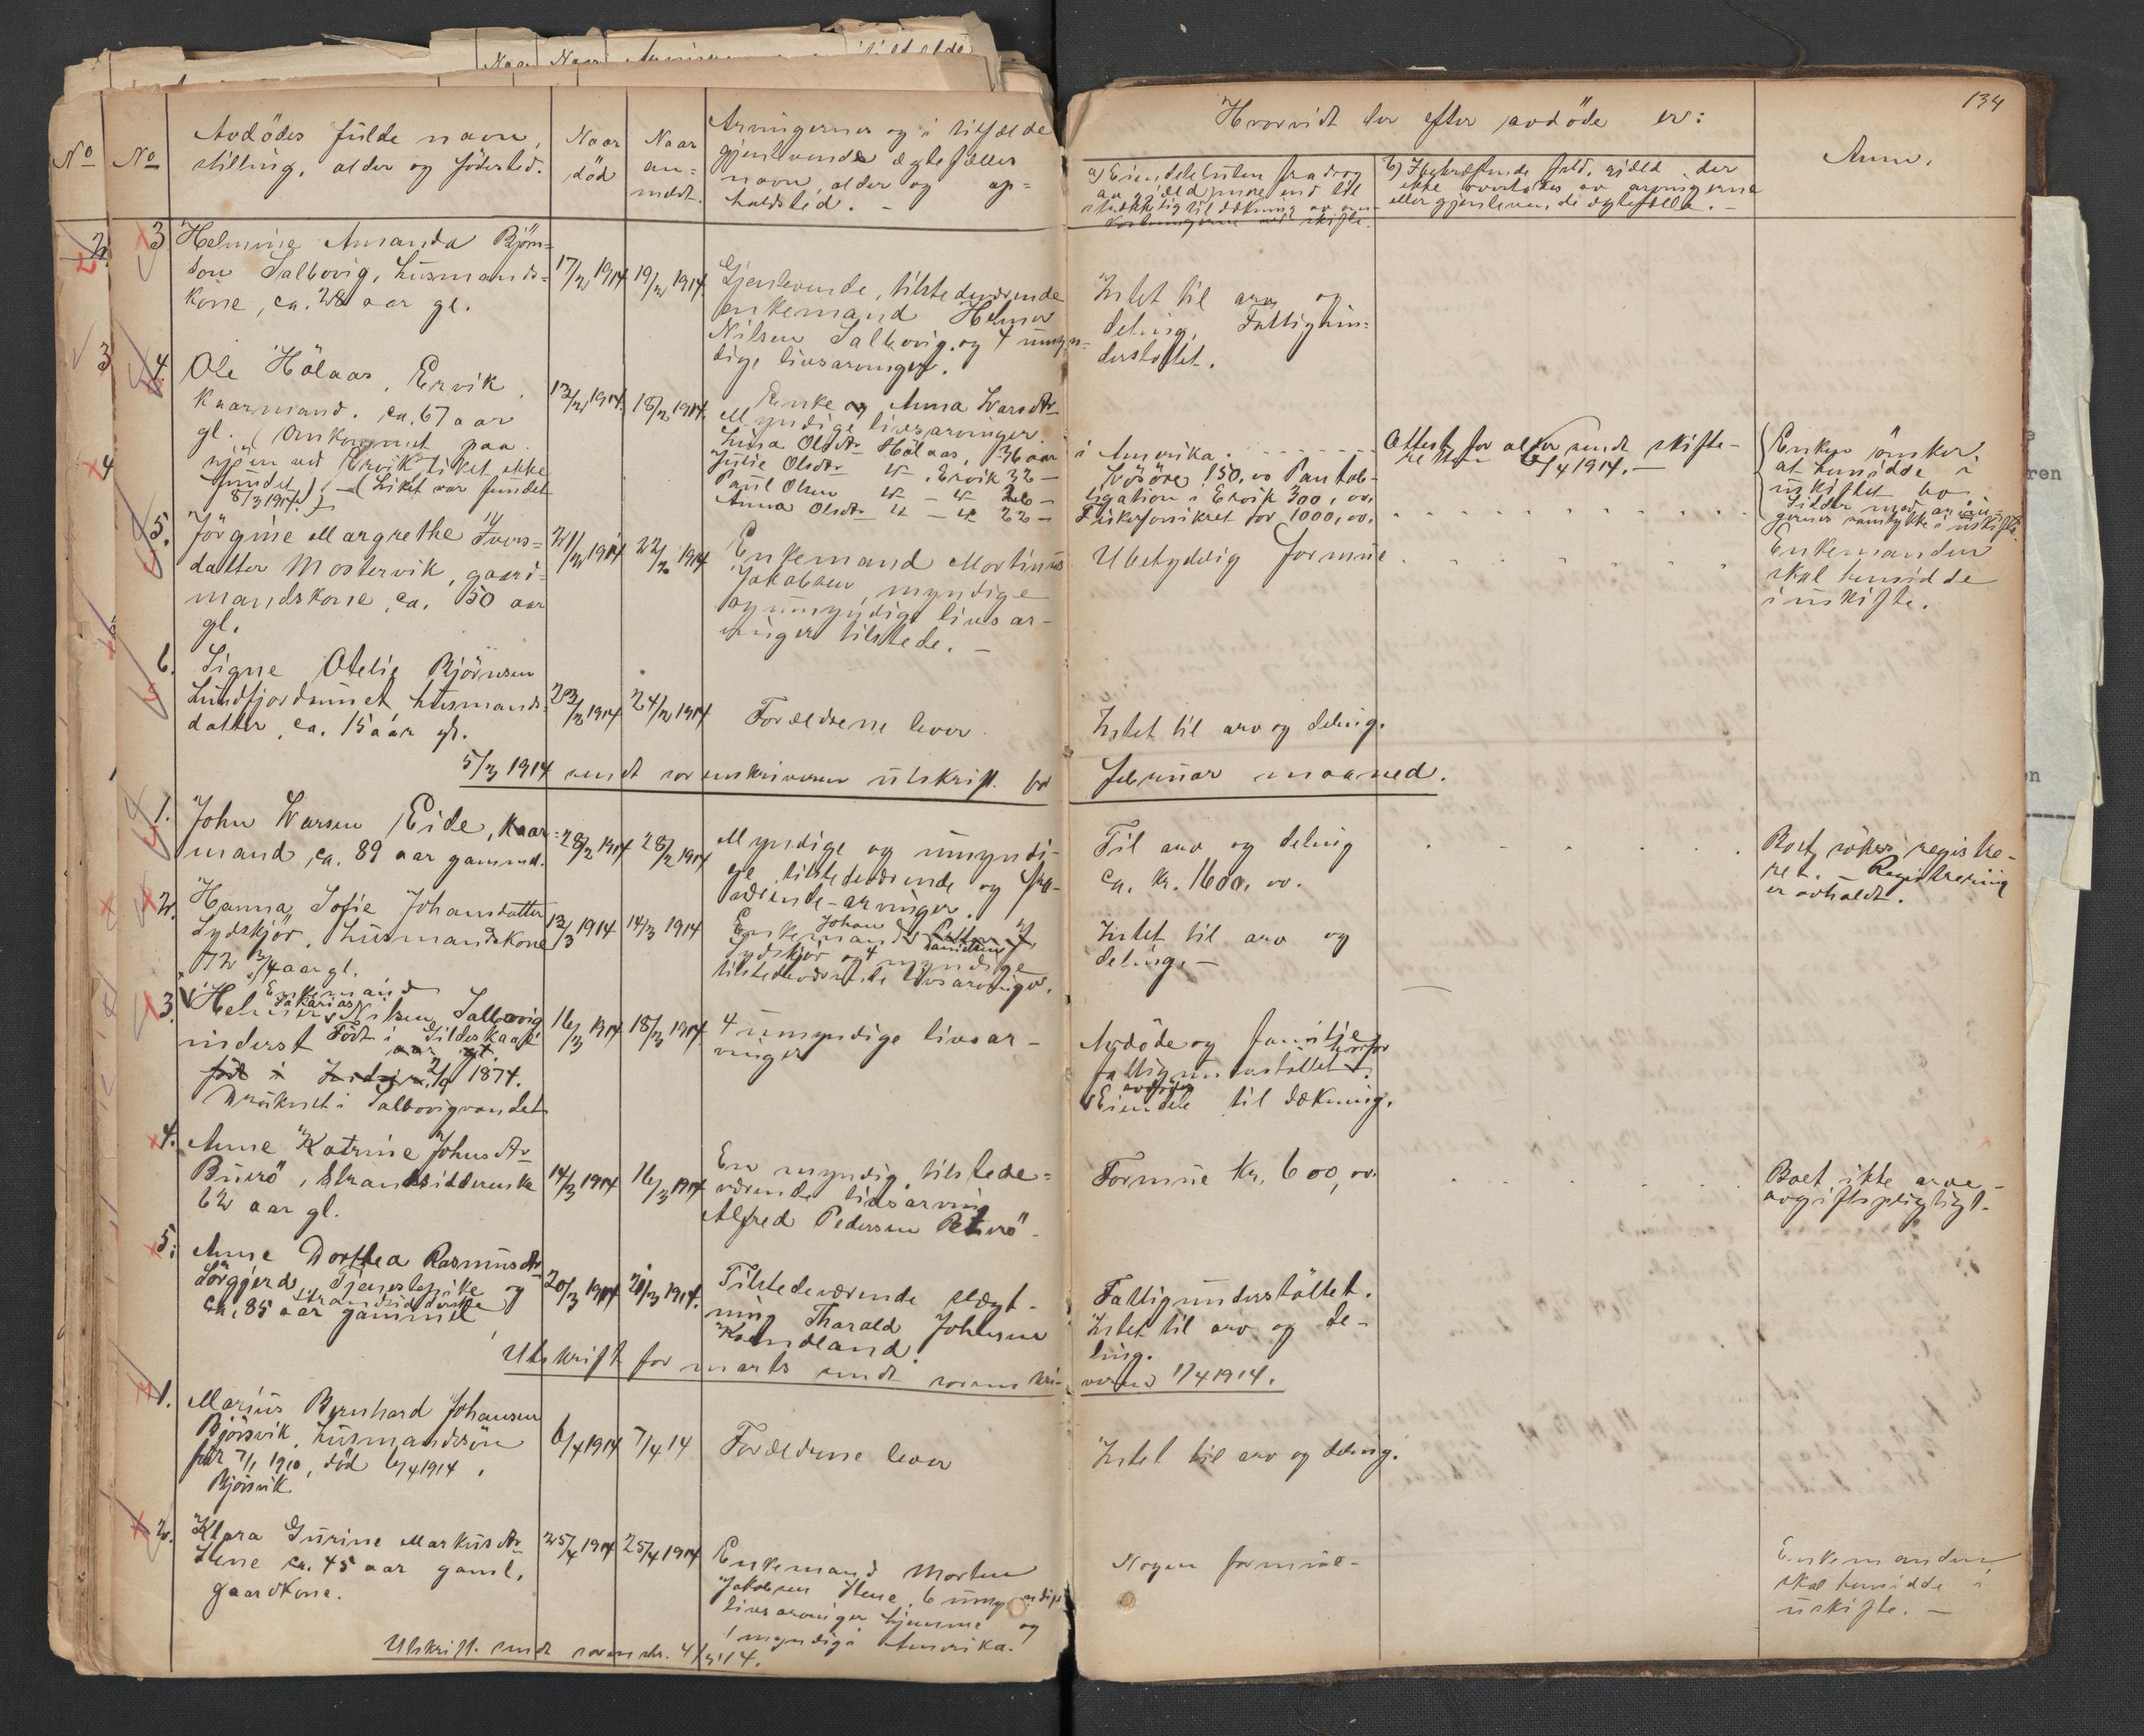 134
No No Avdödes fulde navn, stilling, alder og födested.
Naar död
Naar an=meldt.
Arvingernes og i tilfælde gjenlevende ægtefælles navn, alder og op=holdsted. -
Hvorvidt der efter avdöde er:
a) Eiendele uten fradrag av gjæld mere end til strækkelig til dækning av om-kostningerne ved skifte.
b) ikke overtages av arvingerne eller gjenlevende ægtefælle. -
Anm.
2. 3
Helmine Amanda Björn=
son Salbovig, husmands=
kone, ca. 28 aar gl.
17/2 1914 19/2 1914.
Gjenlevende, tilstedeværende
enkemand Helmer
Nilsen Salbovig og 4 umyn=
dige livsarvinger.
Intet til arv og
deling. Fattigun=
derstöttet.
3 4
Ole Hölaas, Ervik.
Kaarmand. ca. 67 aar
gl. (Omkommet paa
sjöen ved Ervik, liket ikke
fundet) - (Liket var fundet
8/3 1914.)
13/2 1914. 18/2 1914.
Enke Anna Larsdtr
Myndige livsarvinger.
Lina Olsdtr Hölaas, 36 aar
Julie Olsdtr " Ervik 32 -
Paul Olsen " - " 26 -
Anna Olsdtr " - " 22 -
i Amerika.
Lösöre 150,00 Pantob-
ligation i Ervik 300,00.
Fiskerforsikret for 1000,00.
Attest for alder sendt skifte-
retten /4 1914. -
Enken önsker
at hensidde i
uskiftet bo.
Sidder med arvin-
gernes samtykke i uskifte.
4 5.
Jörgine Margrethe Ivers=
datter Mostervik, gaard=
mandskone, ca. 50 aar
gl.
21/2 1914 22/2 1914
Enkemand Martinus
Jakobsen, myndige
og umyndige livsar-
vinger tilstede. -
Ubetydelig formue
Enkemanden
skal hensidde
i uskifte.
6.
Signe Otelie Björnsen
Lundfjordsundet husmands=
datter, ca. 15 aar gl.
23/2 1914 24/2 1914
Forældrene lever.
Intet til arv og deling.
5/3 1914 sendt sorenskriveren utskrift for februar maaned.
1.
John Larsen Eide, kaar=
mand, ca. 89 aar gammel.
28/2 1914 28/2 1914
Myndige og umyndi-
ge tilstedeværende og fra-
værende arvinger.
Til arv og deling
ca. kr. 1600,00.
Boet sökes registre-
ret. Registrering
er avholdt.
2.
Hanna Sofie Johansdatter
Lydskjör, husmandskone
72 3/4 aar gl.
13/3 1914 14/3 1914
Enkemand Johan
Lydskjör og 4 myndige
tilstedeværende livsarvinger.
Intet til arv og
deling. -
3.
Enkemand
Helmer Sakarias Nilsen Salbovig
inderst Födt i Gildeskaal
2/9 1874.
Druknet i Salbovigvandet
16/3 1914 18/3 1914
4 umyndige livsar-
vinger
Avdöde og familie
fattigunderstöttet, hvorfor
avdödes
Eiendele til dækning.
4.
Anne Katrine Johnsdtr
Buerö, Strandsidderenke
62 aar gl.
14/3 1914 16/3 1914
En myndig tilstede=
værende livsarving
Alfred Pedersen Buerö.
Formue Kr. 600,00.
Boet ikke arve-
avgiftspligtigt.
5.
Anne Dorthea Rasmusdtr
Sörgjerd, Tjenestepike og
strandsidderske
ca. 85 aar gammel
20/3 1914 21/3 1914.
Tilstedeværende slægt-
ning Tharald Johnsen
Kvindland.
Fattigunderstöttet.
Intet til arv og de-
ling.
Utskrift for marts sendt sorenskri-veren 1/4 1914.
1.
Marius Bernhard Johansen
Björsvik, husmandssön
för 7/1 1910, död 6/4 1914,
Björsvik
6/4 1914 7/4 14
Forældrene lever
Intet til arv og deling.
2.
Klara Gurine Markusdtr
Hene ca. 45 aar gaml.
gaardkone.
25/4 1914 25/4 1914
Enkemand Morten
Jakobsen Hene, 6 umyndige
livsarvinger hjemme og
1 myndig i Amerika.
Nogen formue -
Enkemanden
skal hensidde i
uskifte. -
Utskrift sendt sorenskr. 4/5 14.